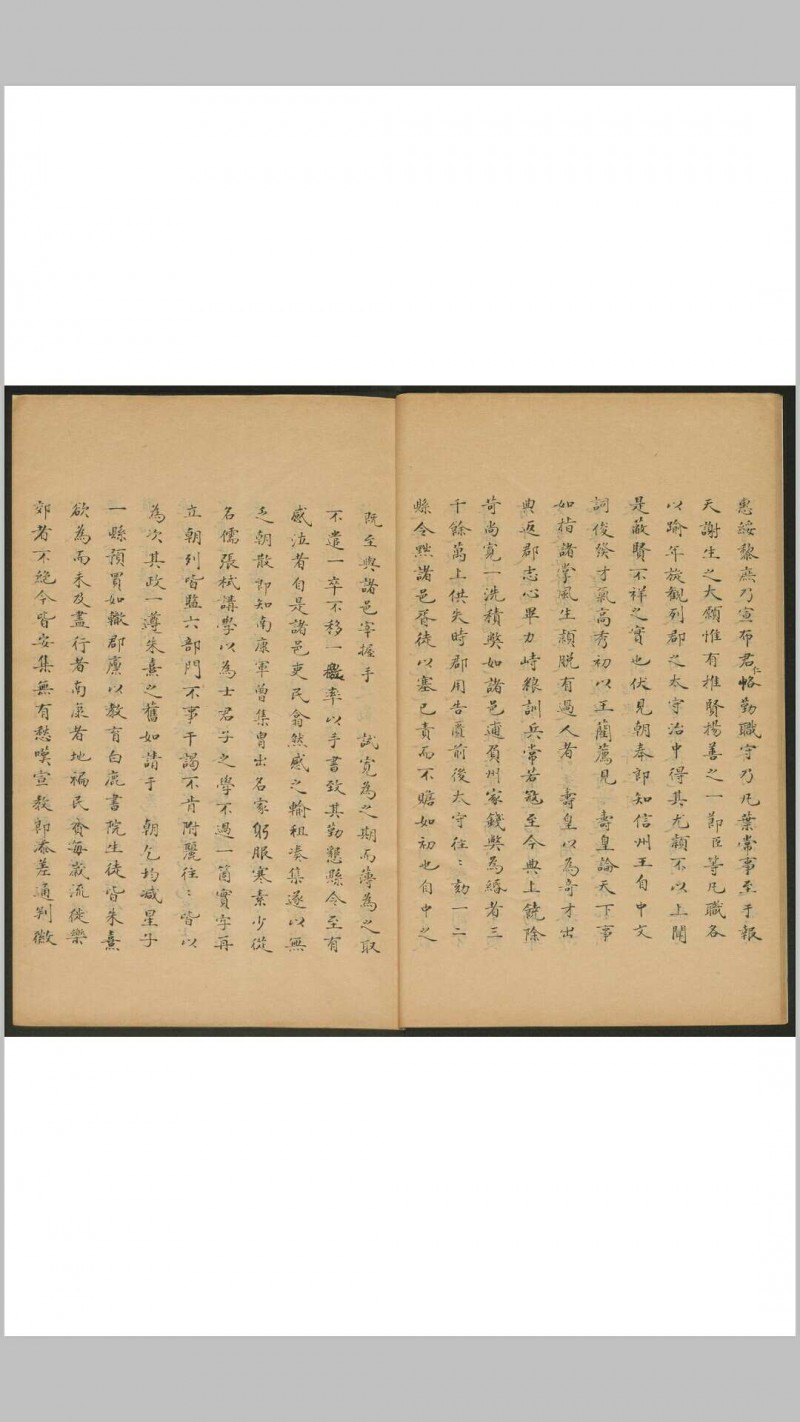 惠綏黎庶乃宣布君仁恪勤職守乃凡葉常事至于報
天謝生之大願惟有推賢揚善之一節臣等凡職各
以踰年旋觀列郡之太守治中得其尤顯不以上聞
是蔽賢不祥之實也伏見朝奉郎知信州王自中文
詞俊發才氣高秀初以王藺薦見　壽皇論天下事
如指諸掌風生穎脫有過人者　壽皇以為奇才出
典返郡志心畢力峙糧訓兵常若寇至今典上饒除
苛尚寬一洗積弊如諸邑逋負州家錢幣為緡者三
千餘萬上供失時郡用告匱前後太守往：劾一二
縣令黥諸邑胥徒以塞已責而不贍如初也自中之
既至與諸邑宰握手　　試寬為之期而薄為之取
不遣一卒不移一檄率以手書致其勤懇縣令至有
感泣者自是諸邑吏民翕然感之輸租湊集遂以無
乏朝散郎知南康軍曾集胄出名家躬服寒素少從
名儒張栻講學以為士君子之學不過一箇實字再
立朝列皆監六部門不事干謁不肯附麗往：皆以
為次其政一遵朱熹之舊如請于　朝乞均減星子
一縣預買如輟郡廪以教育白鹿書院生徒皆朱熹
欲為而未及盡行者南康者地褊民瘠每歲流徙樂
郊者不絕今皆安集無有愁嘆宣教郎添差通判徽